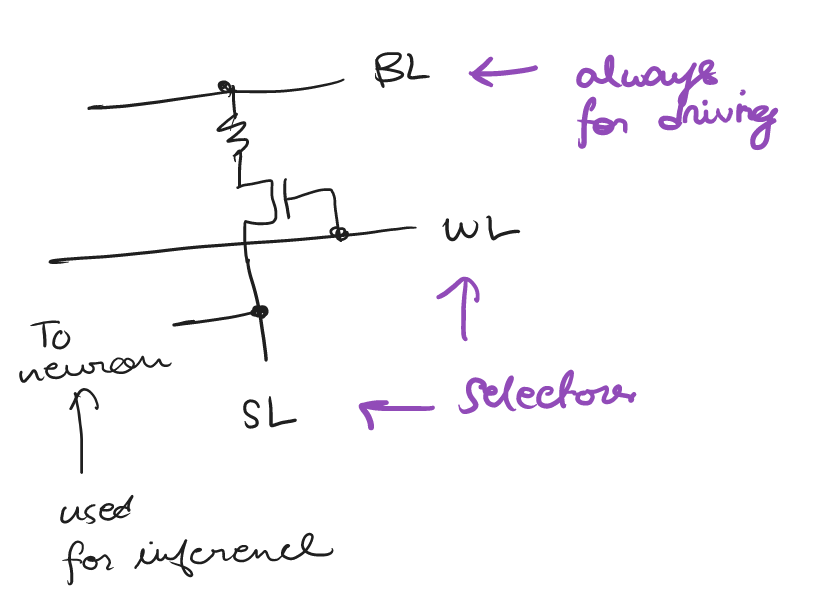 BL
always
for driving
WL
To
neuron
SL
Selector
used
for inference